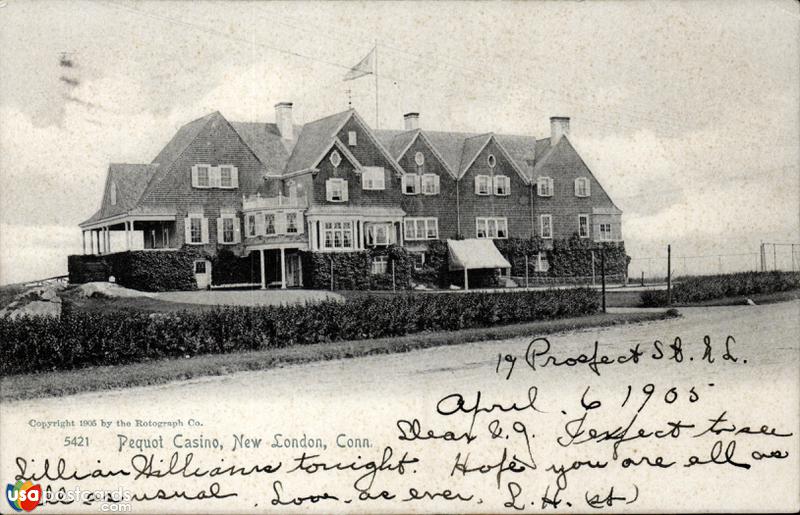 19 Prospect St. N. L.
April. 6 1905
Copyright 1905 by the Rotograph Co.
5421 Pequot Casino, New London, Conn.
Dear E. G. I expect to see
Lillian Williams tonight. Hope you are all as
well as usual. Love as ever. L. H. (St)
usapostcards.com